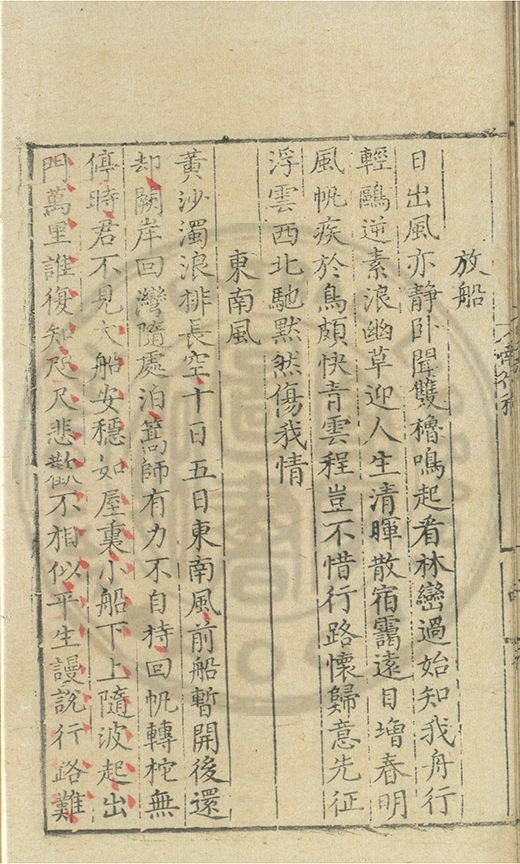 放船
日出風亦靜卧聞雙櫓鳴起看林巒過始知我舟行
輕鷗逆素浪幽草迎人生清暉散宿靄遠目增春明
風帆疾於鳥頗快青雲程豈不惜行路懷歸意先征
浮雲西北馳黙然傷我情
東南風
黃沙濁浪排長空十日五日東南風前船暫開後還
却闕岸回灣隨處泊篙師有力不自持回帆轉柁無
停時君不見大船安穩如屋裏小船下上隨波起出
門萬里誰復知咫尺悲歡不相似平生謾説行路難